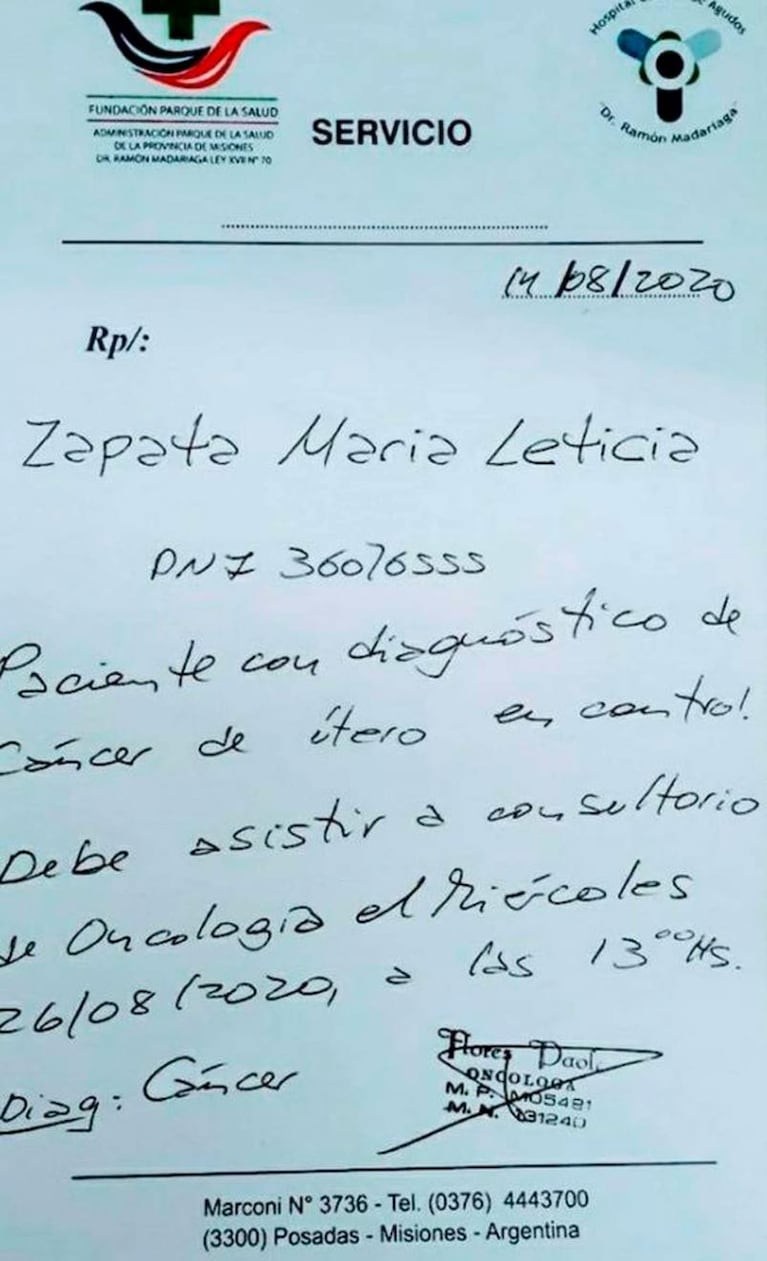 Hospital
Agudos
"Dr. Ramón Madariaga"
FUNDACIÓN PARQUE DE LA SALUD
ADMINISTRACIÓN PARQUE DE LA SALUD
DE LA PROVINCIA DE MISIONES
DR. RAMÓN MADARIAGA LEY XVII Nº 70
SERVICIO
14/08/2020
Rp/:
Zapata Maria Leticia
DNI 36076555
Paciente con diagnóstico de
Cáncer de útero en control.
Debe asistir a consultorio
de Oncología el Miércoles
26/08/2020, a las 13⁰⁰Hs.
Diag: Cáncer
Flores Paol
ONCOLOGA
M. P. M05481
M. N. 131240
Marconi N° 3736 - Tel. (0376) 4443700
(3300) Posadas - Misiones - Argentina